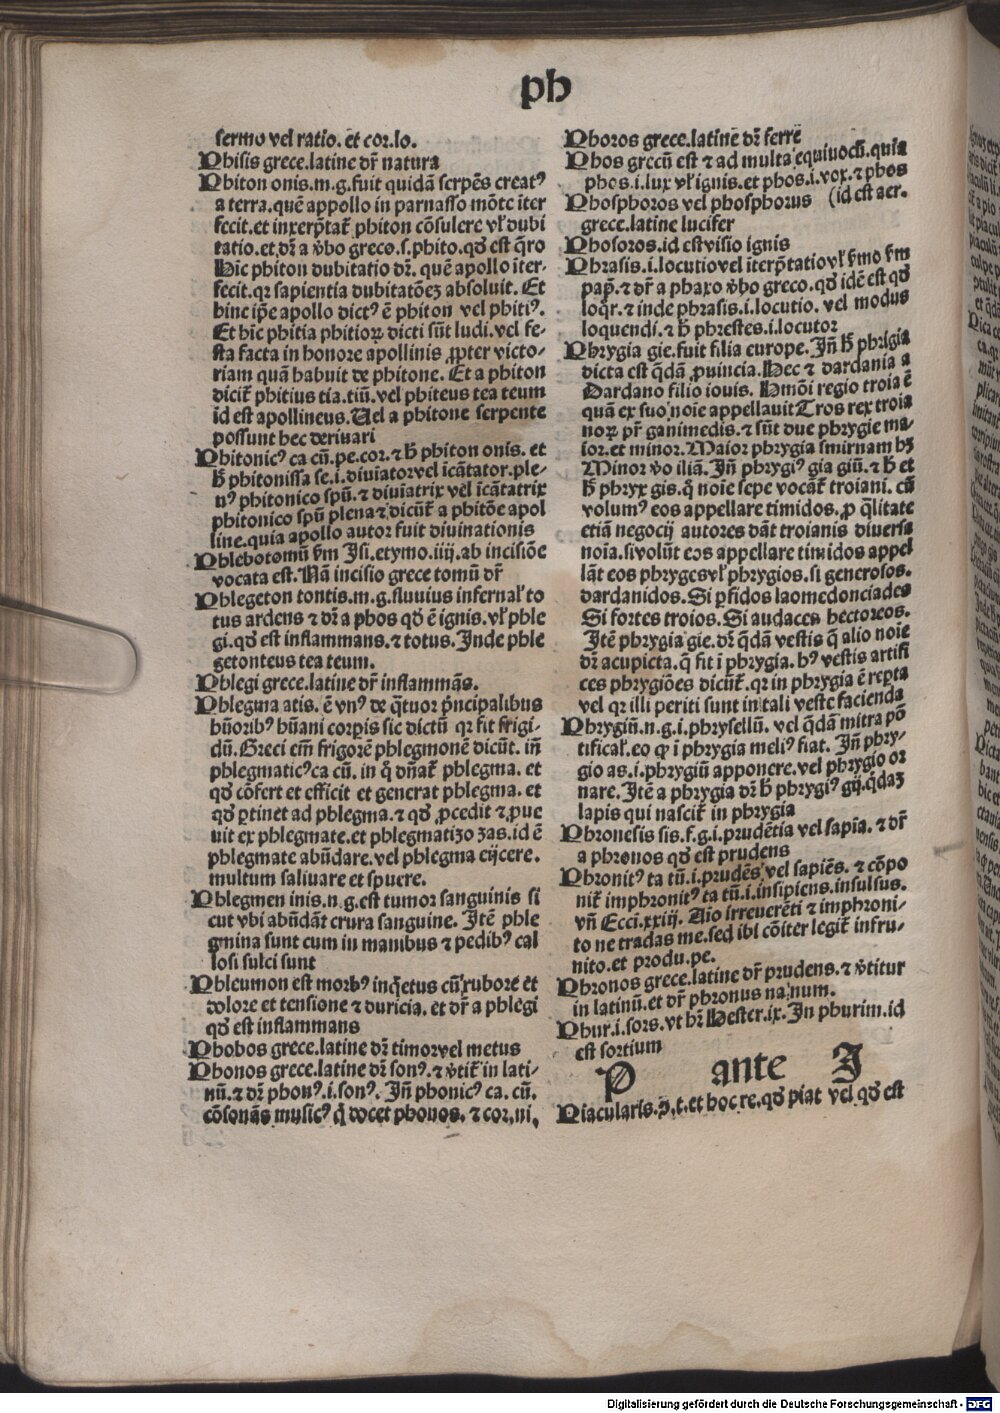 ph
sermo vel ratio. et cor. lo.
Phisis grece. latine dr̄ natura
Phiton onis. m. g. fuit quidā serpēs creatꝰ
a terra. quē appollo in parnasso mōte iter
fecit. et inxerp̄tat᷑ phiton cōsulere vl᷑ dubi
tatio. et. dr̄ a v̄bo greco. s. phito. qď est q̄ro
Hic phiton dubitatio dr̄. quē apollo iter-
fecit. qr sapientia dubitatōeꝫ absoluit. Et
hinc ip̄e apollo dictꝰ ē phiton vel phitiꝰ.
Et hic phitia phitioꝝ dicti sūt ludi. vel fe-
sta facta in honore apollinis ꝓpter victo-
riam quā habuit de phitone. Et a phiton
dicit᷑ phitius tia. tiū. vel phiteus tea teum
id est apollineus. Uel a phitone serpente
possunt hec deriuari
Phitonicꝰ ca cū. pe. cor. ⁊ h̄ phiton onis. et
h̄ phitonissa se. i. diuiator vel īcātator. ple-
nꝰ phitonico spū. ⁊ diuīatrix vel īcātatrix
phitonico spū plena ⁊ dicūt᷑ a phitōe apol
line. quia apollo autor fuit diuinationis
Phlebotomū ẜm Isi. etymo. iiij. ab incisiōe
vocata est. Nā incisio grece tomū dr̄
Phlegeton tontis. m. g. fluuius infernal᷑ to
tus ardens ⁊ dr̄ a phos qď ē ignis. vl᷑ phle
gi. qď est inflammans. ⁊ totus. Inde phle
getonteus tea teum.
Phlegi grece. latine dr̄ inflammās.
Phlegma atis. ē vnꝰ de q̄tuor p̄ncipalibus
hūoribꝰ hūani corꝑis sic dictū qr fit frigi-
dū. Greci em̄ frigorē phlegmonē dicūt. in̄
phlegmaticꝰ ca cū. in q̊ dn̄at᷑ phlegma. et
qď cōfert et efficit et generat phlegma. et
qď ꝑtinet ad phlegma. ⁊ qď ꝓcedit ⁊ ꝓue
uit ex phlegmate. et phlegmatizo zas. id ē
phlegmate abūdare. vel phlegma eijcere.
multum saliuare et spuere.
Phlegmen inis. n. g. est tumor sanguinis si
cut vbi abūdāt crura sanguine. Itē phle
gmina sunt cum in manibus ⁊ pedibꝰ cal
losi sulci sunt
Phleumon est morbꝰ inq̇etus cū rubore et
dolore et tensione ⁊ duricia. et dr̄ a phlegi
qď est inflammans
Phobos grece. latine dr̄ timor vel metus
Phonos grece. latine dr̄ sonꝰ. ⁊ v̄tit᷑ in lati-
nū. ⁊ dr̄ phonꝰ. i. sonꝰ. In̄ phonicꝰ ca. cū.
cōsonās musicꝰ q̇ docet phonos. ⁊ cor. ni.
Phoros grece. latine dr̄ ferre
Phos grecū est ⁊ ad multa equiuocū. quia
phos. i. lux vl᷑ ignis. et phos. i. vox. ⁊ phos
Phosphoros vel phosphorus (id est aer.
grece. latine lucifer
Phosoros. id est visio ignis
Phrasis. i. locutio vel īterp̄tatio vl᷑ ẜmo ẜm
pap. ⁊ dr̄ a phaxo v̄bo greco. qď idē est qď
loq̄r. ⁊ inde phrasis. i. locutio. vel modus
loquendi. ⁊ h̄ phrestes. i. locutor
Phrygia gie. fuit filia europe. In̄ h̄ phrigia
dicta est q̄dā ꝓuincia. Hec ⁊ dardania a
Dardano filio iouis. Hmōi regio troia ē
quā ex suo noīe appellauit Tros rex troia
noꝝ pr̄ ganimedis. ⁊ sūt due phrygie ma-
ior. et minor. Maior phrygia smirnam hꝫ
Minor v̊o iliā. In̄ phrygiꝰ gia giū. ⁊ h̄ et
h̄ phryx gis. q̊ noīe sepe vocāt᷑ troiani. cū
volumꝰ eos appellare timidos. ꝓ q̄litate
etiā negocij autores dāt troianis diuersa
noīa. si volūt eos appellare timidos appel
lāt eos phryges vl᷑ phrygios. si generosos.
dardanidos. Si ꝑfidos laomedonciades
Si fortes troios. Si audaces hectoreos.
Itē phrygia gie. dr̄ q̄dā vestis q̄ alio noīe
dr̄ acupicta. q̄ fit ī phrygia. hꝰ vestis artifi
ces phrygiōes dicūt᷑. qr in phrygia ē reꝑta
vel qr illi periti sunt in tali veste facienda
Phrygiū. n. g. i. phrysellū. vel q̄dā mitra pō
tifical᷑. eo ꝙ ī phrygia meliꝰ fiat. In̄ phry-
gio as. i. phrygiū apponere. vel phrygio or
nare. Itē a phrygia dr̄ h̄ phrygiꝰ gij. q̇daꝫ
lapis qui nascit᷑ in phrygia
Phronesis sis. f. g. i. prudētia vel sapīa. ⁊ dr̄
a phronos qď est prudens
Phronitꝰ ta tū. i. prudēs vel sapiēs. ⁊ cōpo
nit᷑ imphronitꝰ ta tū. i. insipiens. insulsus.
vn̄ Ecci. xxiij. Aīo irreuerēti ⁊ imphroni-
to ne tradas me. sed ibi cōiter legit᷑ infru-
nito. et produ. pe.
Phronos grece. latine dr̄ prudens. ⁊ v̄titur
in latinū. et dr̄ phronus na num.
Phur. i. sors. vt hr̄ Hester. ix. In phurim. id
est sortium
P ante I
Piacularis. ꝛ̄. t. et hoc re. qď piat vel qď est
Digitalisierung gefördert durch die Deutsche Forschungsgemeinschaft - DFG